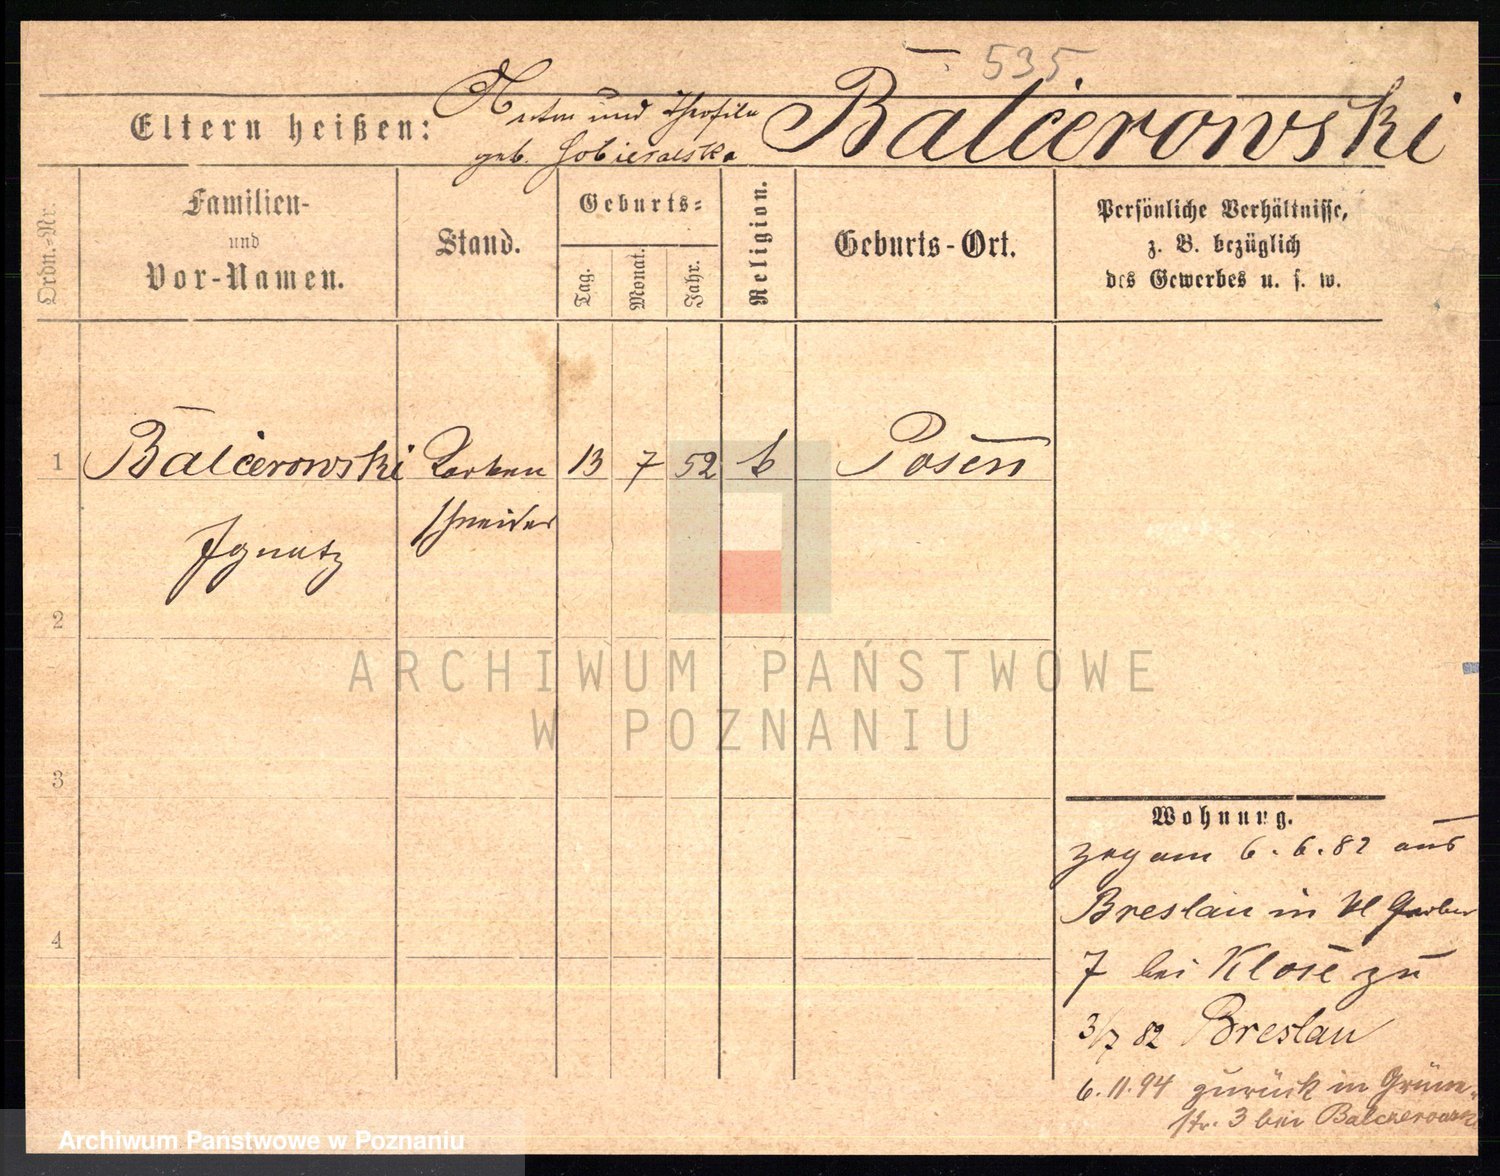 535
Eltern heißen: Anton und Theofila Balcerowski
geb. Sobieralska
Ordn.-Nr.
Familien-
und
Vor-Namen.
Stand.
Geburts-
Tag.
Monat.
Jahr.
Religion.
Geburts-Ort.
Persönliche Verhältnisse,
z. B. bezüglich
des Gewerbes u. s. w.
1 Balcerowski 13 7 52 k Posen
Ignatz schneider
2
ARCHIWUM PAŃSTWOWE
W POZNANIU
3
4
Wohnung.
zog am 6.6.82 aus
Breslau in kl Gerber
7 bei Klose zu
3/7 82 Breslau
6.11.94 zurück in Grüne-
str. 3 bei Balcerowski
Archiwum Państwowe w Poznaniu